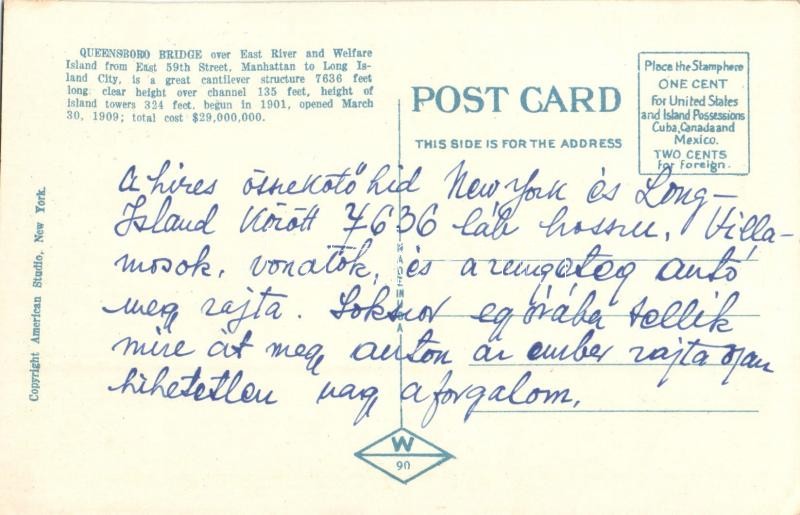 QUEENSBORO BRIDGE over East River and Welfare
Island from East 59th Street, Manhattan to Long Is-
land City, is a great cantilever structure 7636 feet
long clear height over channel 135 feet, height of
island towers 324 feet. begun in 1901, opened March
30, 1909; total cost $29,000,000.
POST CARD
THIS SIDE IS FOR THE ADDRESS
Place the Stamp here
ONE CENT
For United States
and Island Possessions
Cuba, Canada and
Mexico.
TWO CENTS
For Foreign.
A hires össekötő hid New York és Long-
Island között 7636 láb hosszu. Villa-
mosok, vonatok, és a rengeteg autó
meg rajta. Soksor egy órába tellik
mire át meg auton az ember rajta ojan
hihetetlen nag a forgalom.
Copyright American Studio, New York.
MADE IN U S A
W
90